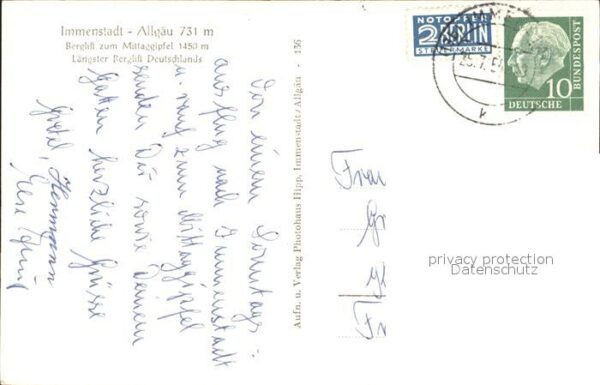 Immenstadt - Allgäu 731 m
Berglift zum Mittaggipfel 1450 m
Längster Berglift Deutschlands
Von einem Sonntags-
ausflug nach Immenstadt
u. rauf zum Mittaggipfel
senden Dir sowie Deinem
Gatten herzliche Grüsse
Gretel, Hermann
Aufn. u. Verlag Photohaus Hipp, Immenstadt/Allgäu · 136
NOTOPFER
2 BERLIN
STEUERMARKE
10
DEUTSCHE
BUNDESPOST
25.7.5
Frau
Gr
Fr
privacy protection
Datenschutz